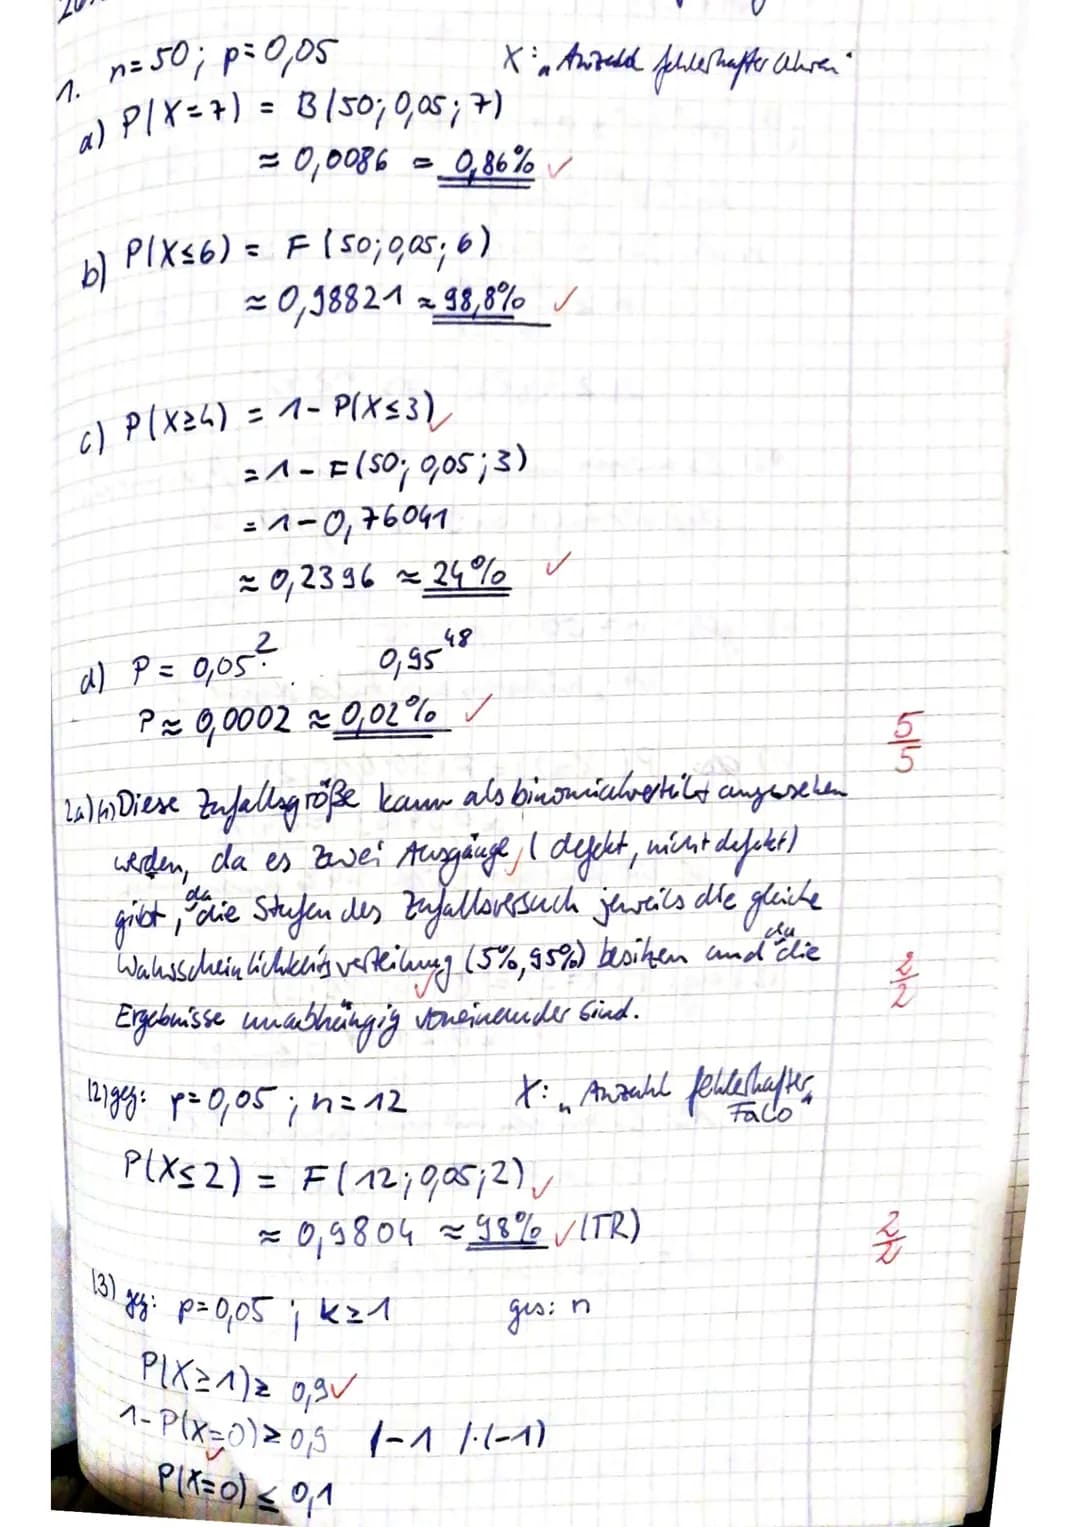 1. n=50; p=0,05 X: „Anzahl fehlerhafter Uhren"
a) P(X=7) = B(50; 0,05; 7)
≈ 0,0086 = 0,86% ✓
b) P(X≤6) = F(50; 0,05; 6)
≈ 0,98821 ≈ 98,8% ✓
c) P(X≥4) = 1 - P(X≤3) ✓
= 1 - F(50; 0,05; 3)
= 1 - 0,76041
≈ 0,2396 ≈ 24% ✓
d) P = 0,05² · 0,95⁴⁸
P ≈ 0,0002 ≈ 0,02% ✓
5/5
2a)(1) Diese Zufallsgröße kann als binomialverteilt angesehen
werden, da es zwei Ausgänge, (defekt, nicht defekt)
gibt, da die Stufen des Zufallsversuch jeweils die gleiche
Wahrscheinlichkeitsverteilung (5%, 95%) besitzen und da die
Ergebnisse unabhängig voneinander sind.
2/2
(2) geg: p=0,05; n=12 X: „Anzahl fehlerhafter
FaCo"
P(X≤2) = F(12; 0,05; 2) ✓
≈ 0,9804 ≈ 98% ✓ (TR)
2/2
(3) geg: p=0,05; k≥1 ges: n
P(X≥1) ≥ 0,9 ✓
1-P(X=0) ≥ 0,9 /-1 /·(-1)
P(X=0) ≤ 0,1